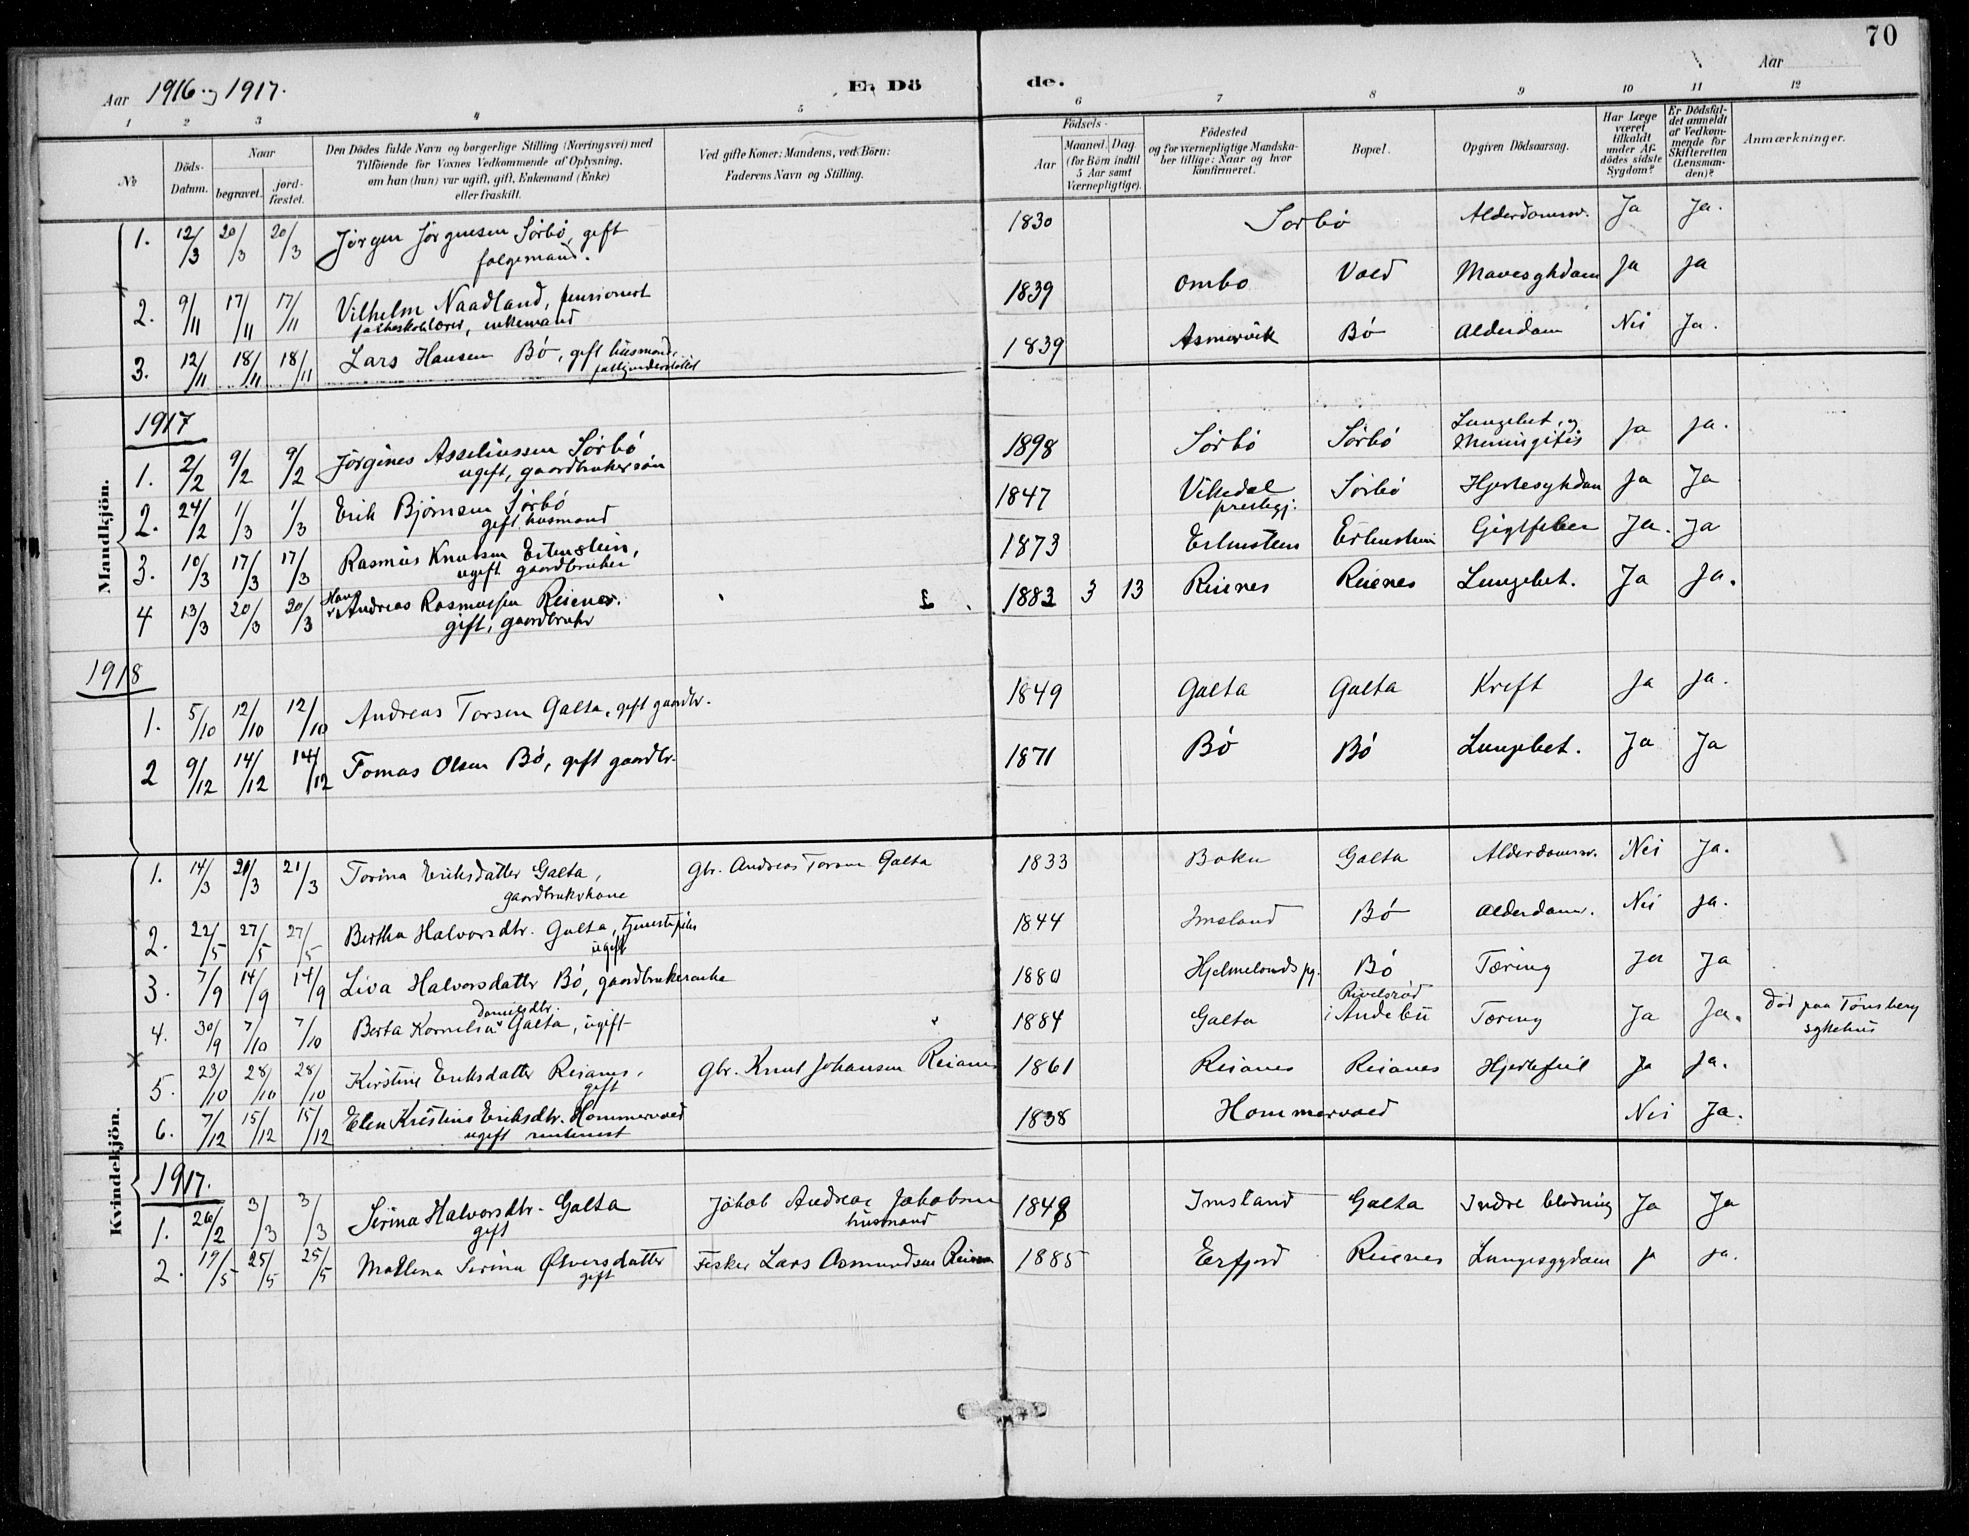 70
Aar 1916 og 1917.
En Dö
de.
Aar
1 2 3 4 5 6 7 8 9 10 11 12
No
Döds-Datum.
Naar
begravet.
jord-fæstet.
Den Dödes fulde Navn og borgerlige Stilling (Næringsvei) med
Tilföiende for Voxnes Vedkommende af Oplysning,
om han (hun) var ugift, gift, Enkemand (Enke)
eller fraskilt.
Ved gifte Koner: Mandens, ved Börn:
Faderens Navn og Stilling.
Födsels-
Aar
Maaned. Dag.
(for Börn indtil
5 Aar samt
Værnepligtige).
Födested
og for værnepligtige Mandska-
ber tillige: Naar og hvor
konfirmeret.
Bopæl.
Opgiven Dödsaarsag.
Har Læge
været
tilkaldt
under Af-
dödes sidste
Sygdom?
Er Dödsfal-
det anmeldt
af Vedkom-
mende for
Skifteretten
(Lensman-
den)?
Anmærkninger.
Mandkjön.
1. 12/3 20/3 20/3 Jörgen Jörgensen Sörbö, gift 1830 Sorbö Alderdomssv. Ja Ja.
folgemand.
2. 9/11 17/11 17/11 Vilhelm Naadland, pensionert 1839 Ombo Vold Mavesykdom Ja Ja
folkeskolelærer, enkemand
3. 12/11 18/11 18/11 Lars Hansen Bö, gift husmand, 1839 Asmervik Bö Alderdom Nei Ja.
fattigunderstöttet
1917
1. 2/2 9/2 9/2 Jörgines Asseliussen Sörbö 1898 Sörbö Sörbö Lungebet. og Meningitis Ja Ja.
ugift, gaardbrukersön
2. 24/2 1/3 1/3 Erik Björnsen Sörbö 1847 Vikedal prestegj. Sörbö Hjertesykdom Ja Ja
gift husmand
3. 10/3 17/3 17/3 Rasmus Knutsen Ertenstein, 1873 Ertenstein Ertenstein Gigtfeber Ja. Ja
ugift gaardbruker
4 13/3 20/3 20/3 Hans Andreas Rasmussen Reienes. 1883 3 13 Reienes Reienes Lungebet. Ja Ja.
gift, gaardbruker
1918
1. 5/10 12/10 12/10 Andreas Torsen Galta, gift gaardbr. 1849 Galta Galta Kreft Ja Ja.
2 9/12 14/12 14/12 Tomas Olsen Bö, gift gaardbr. 1871 Bö Bö Lungebet. Ja Ja
Kvindekjön.
1. 14/3 21/3 21/3 Torina Eriksdatter Galta, gbr. Andreas Torsen Galta 1833 Bokn Galta Alderdomssv. Nei Ja.
gaardbrukerkone
2. 22/5 27/5 27/5 Bertha Halvorsdtr. Galta, tjenestepike 1844 Imsland Bö Alderdomsv. Nei Ja.
ugift
3. 7/9 14/9 14/9 Liva Halvorsdatter Bö, gaardbrukerenke 1880 Hjelmelands pg. Bö Tæring Ja Ja
4. 30/9 7/10 7/10 Berta Kornelia Danielsdtr. Galta, ugift 1884 Galta i Andebu Tæring Ja Ja. Död paa Tönsberg
sykehus
5. 23/10 28/10 28/10 Kirstine Eriksdatter Reianes, gbr. Knut Johansen Reianes 1861 Reianes Reianes Hjertefeil Ja Ja.
gift
6. 7/12 15/12 15/12 Elen Kristine Eriksdtr. Hommervold 1838 Hommervold Nei Ja.
ugift rentenist
1917.
1. 26/2 3/3 3/3 Serina Halvorsdtr. Galta Jakob Andreas Jakobsen 1848 Imsland Galta Indre blödning Ja Ja
gift husmand
2. 19/5 25/5 25/5 Mallena Serina Östversdatter Fisker Lars Osmundsen Reienes 1885 Erfjord Reienes Lungesygdom Ja Ja.
gift